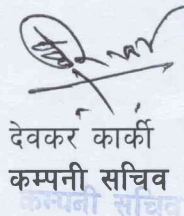 देवकर कार्की
कम्पनी सचिव
कम्पनी सचिव